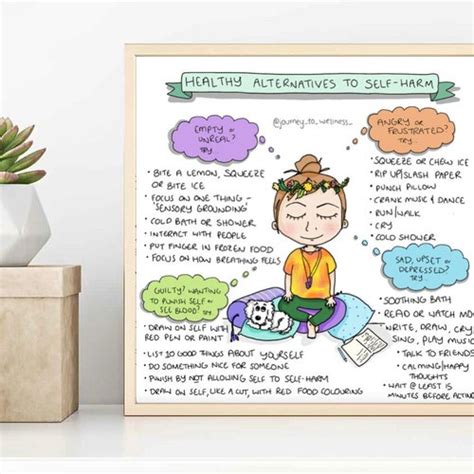 HEALTHY ALTERNATIVES TO SELF-HARM
@journey_to_wellness_
EMPTY or
UNREAL?
TRY...
• BITE A LEMON, SQUEEZE
OR BITE ICE
• FOCUS ON ONE THING -
'SENSORY GROUNDING'
• COLD BATH OR SHOWER
• INTERACT WITH PEOPLE
• PUT FINGER IN FROZEN FOOD
• FOCUS ON HOW BREATHING FEELS
GUILTY? WANTING
TO PUNISH SELF or
SEE BLOOD? TRY...
• DRAW ON SELF WITH
RED PEN OR PAINT
• LIST 10 GOOD THINGS ABOUT YOURSELF
• DO SOMETHING NICE FOR SOMEONE
• PUNISH BY NOT ALLOWING SELF TO SELF-HARM
• DRAW ON SELF, LIKE A CUT, WITH RED FOOD COLOURING
ANGRY or
FRUSTRATED?
TRY...
• SQUEEZE OR CHEW ICE
• RIP UP/SLASH PAPER
• PUNCH PILLOW
• CRANK MUSIC & DANCE
• RUN/WALK
• CRY
• COLD SHOWER
SAD, UPSET or
DEPRESSED?
TRY...
• SOOTHING BATH
READ OR WATCH MO
WRITE, DRAW, CRY,
SING, PLAY MUSIC
• TALK TO FRIENDS
• CALMING/HAPPY
THOUGHTS
• WAIT @LEAST 15
MINUTES BEFORE ACTING